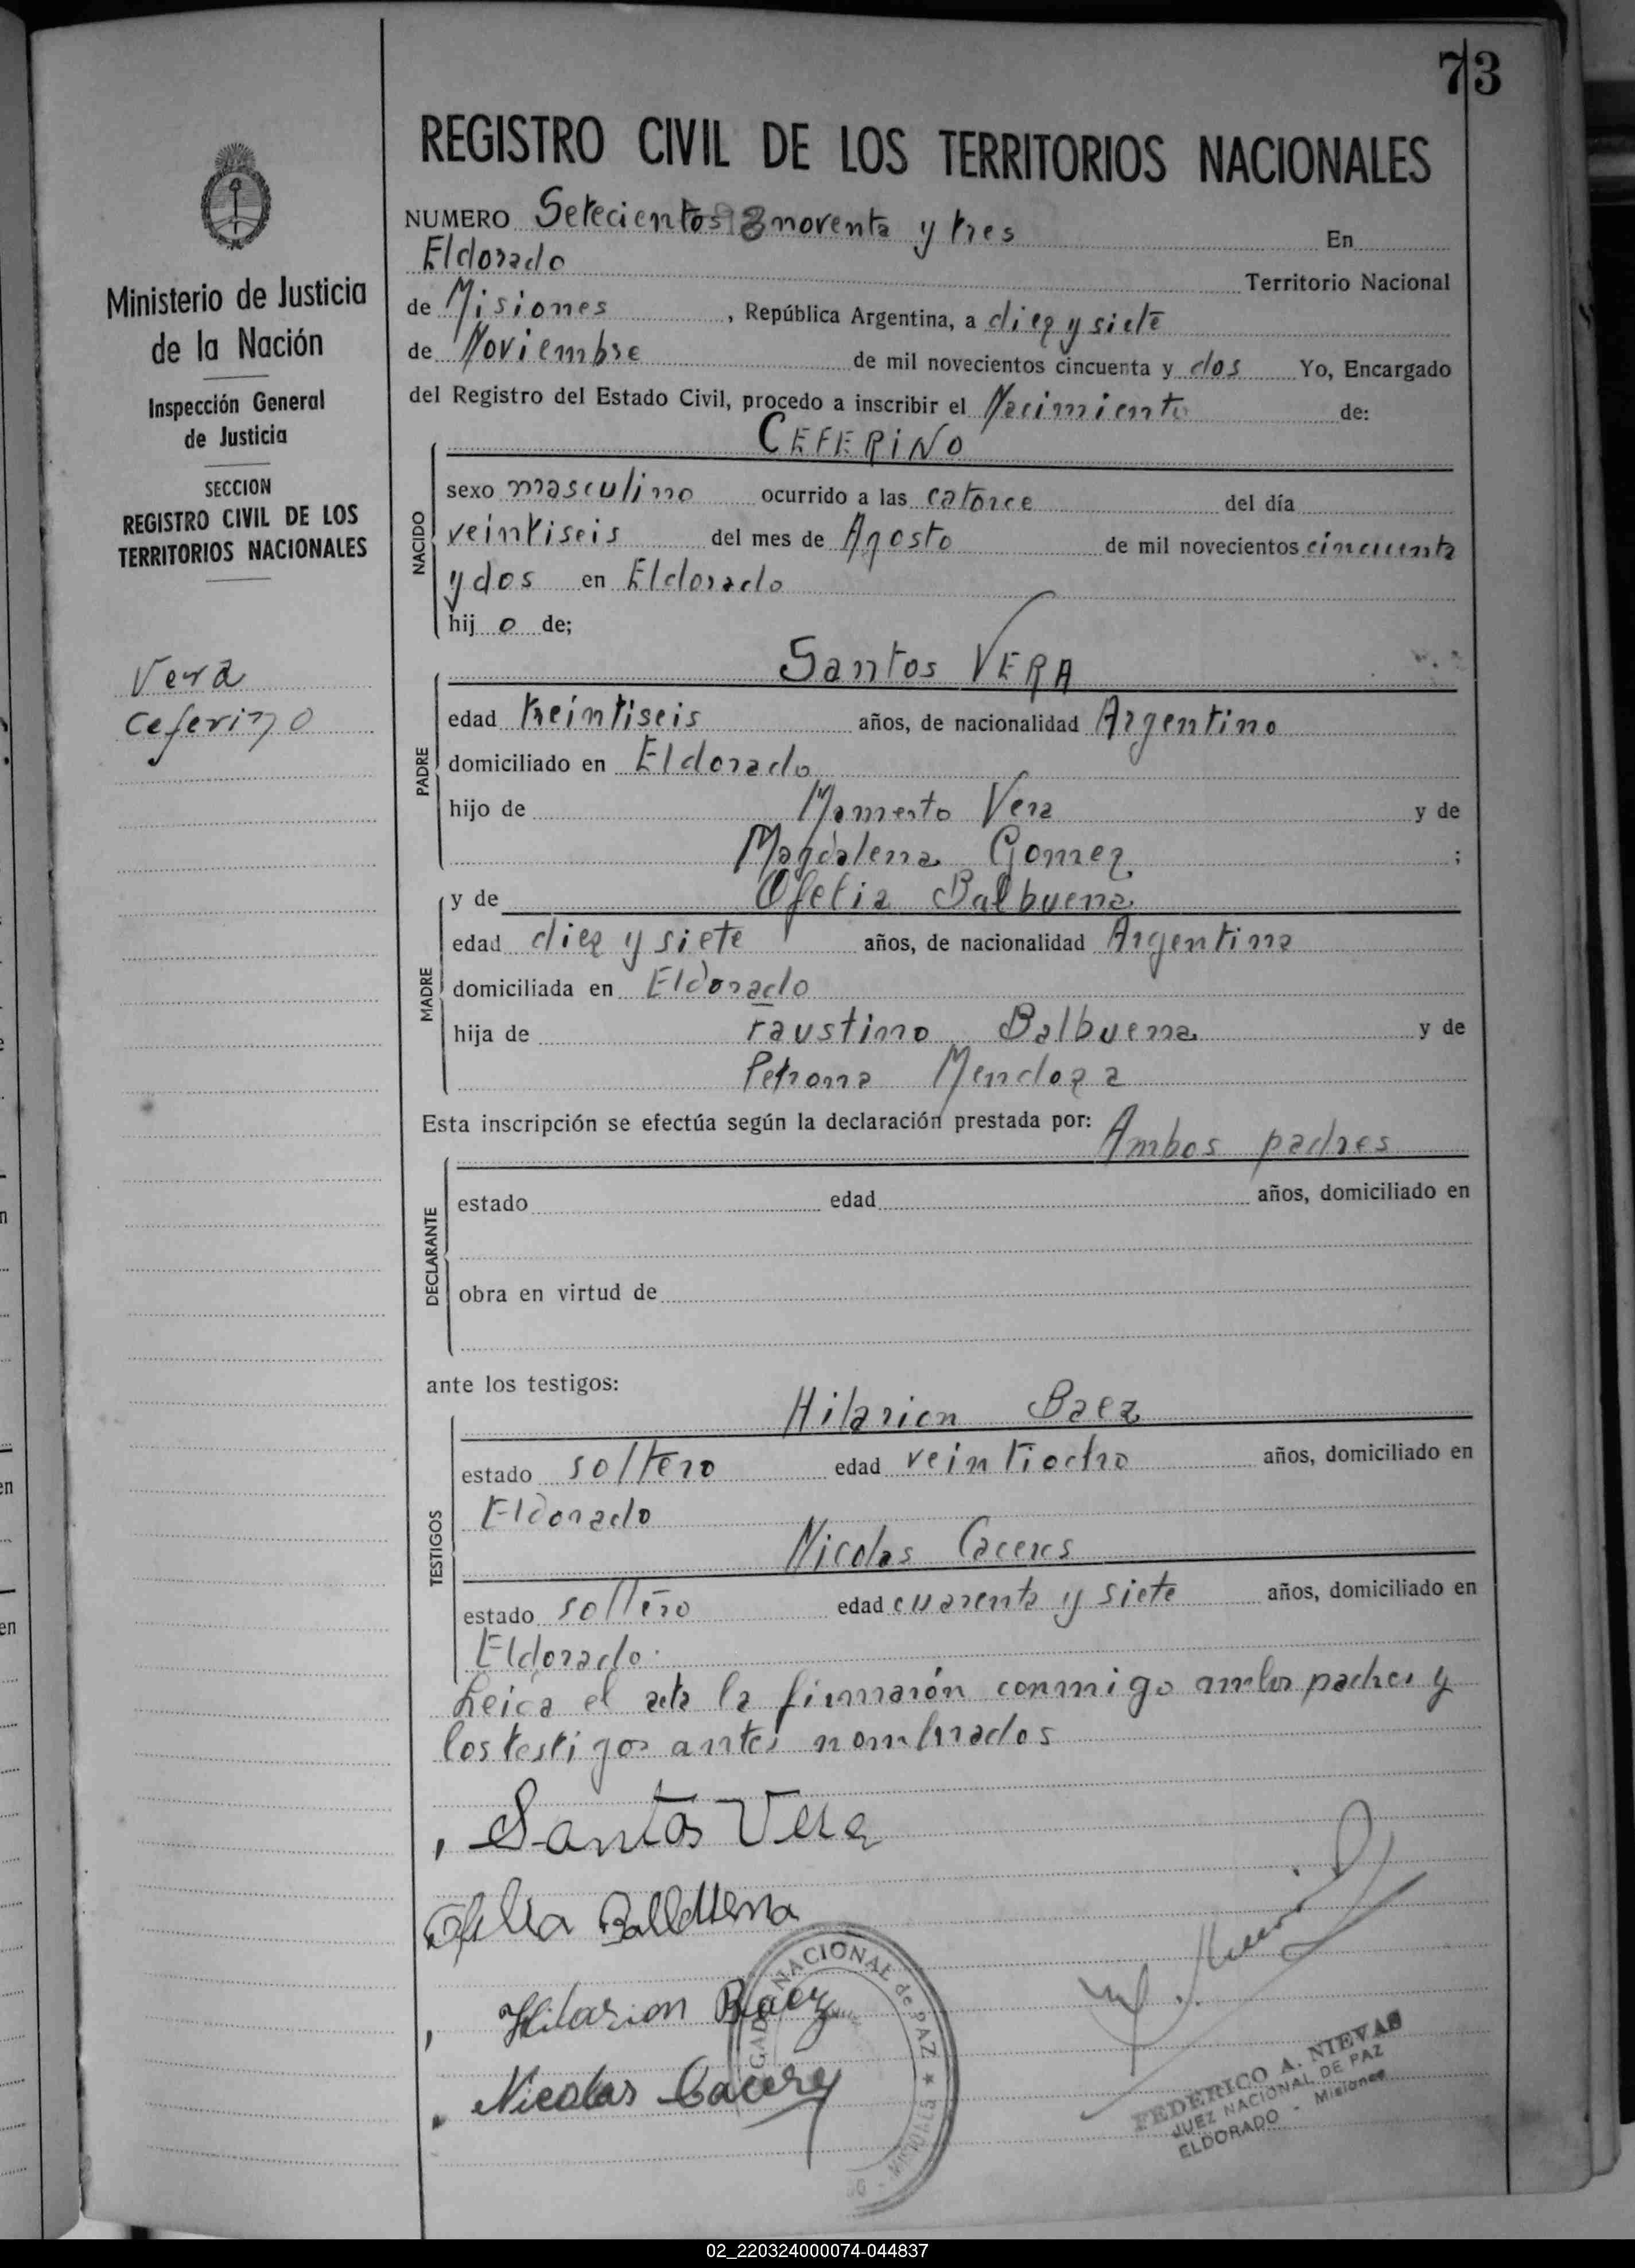 73
REGISTRO CIVIL DE LOS TERRITORIOS NACIONALES
Ministerio de Justicia
de la Nación
Inspección General
de Justicia
SECCION
REGISTRO CIVIL DE LOS
TERRITORIOS NACIONALES
Vera
Ceferino
NUMERO Setecientos noventa y tres En
Eldorado Territorio Nacional
de Misiones, República Argentina, a diez y siete
de Noviembre de mil novecientos cincuenta y dos Yo, Encargado
del Registro del Estado Civil, procedo a inscribir el Nacimiento de:
CEFERINO
NACIDO
sexo masculino ocurrido a las catorce del día
veintiseis del mes de Agosto de mil novecientos cincuenta
y dos en Eldorado
hijo de;
Santos VERA
PADRE
edad treintiseis años, de nacionalidad Argentino
domiciliado en Eldorado
hijo de Vera y de
Magdalena Gomez;
MADRE
y de Ofelia Balbuena
edad diez y siete años, de nacionalidad Argentina
domiciliada en Eldorado
hija de Faustino Balbuena y de
Petrona Mendoza
Esta inscripción se efectúa según la declaración prestada por:
Ambos padres
DECLARANTE
estado edad años, domiciliado en
obra en virtud de
ante los testigos:
Hilarion Baez
TESTIGOS
estado soltero edad veintiocho años, domiciliado en
Eldorado
Nicolas Caceres
estado soltero edad cuarenta y siete años, domiciliado en
Eldorado.
Leida el acta la firmarón conmigo ambos padres y
los testigos antes nombrados
Santos Vera
Ofelia Balbuena
Hilarion Baez
Nicolas Caceres
NACIONAL de PAZ ★
FEDERICO A. NIEVAS
JUEZ NACIONAL DE PAZ
ELDORADO - Misiones
02_220324000074-044837